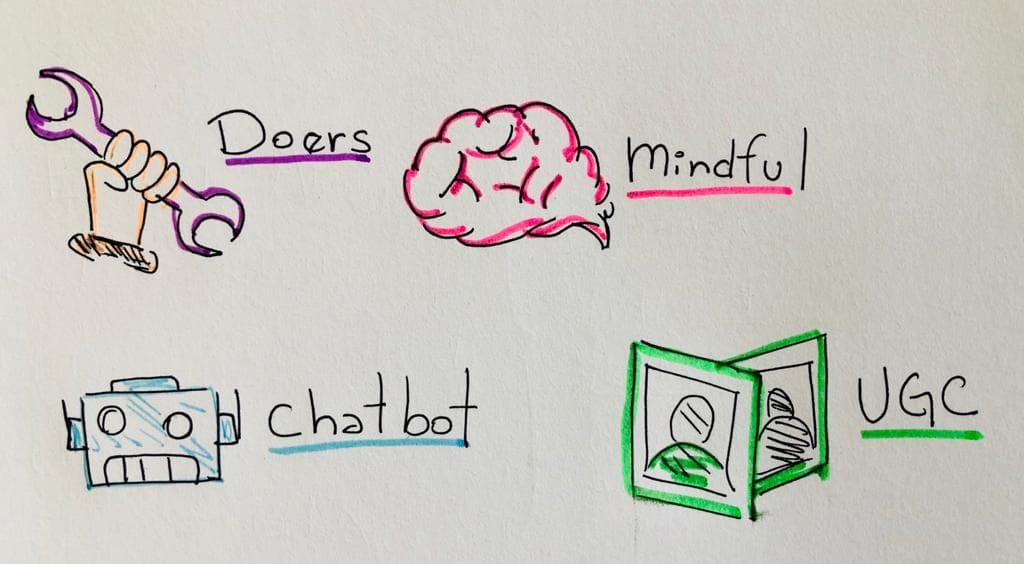 Doers
Mindful
Chatbot
UGC